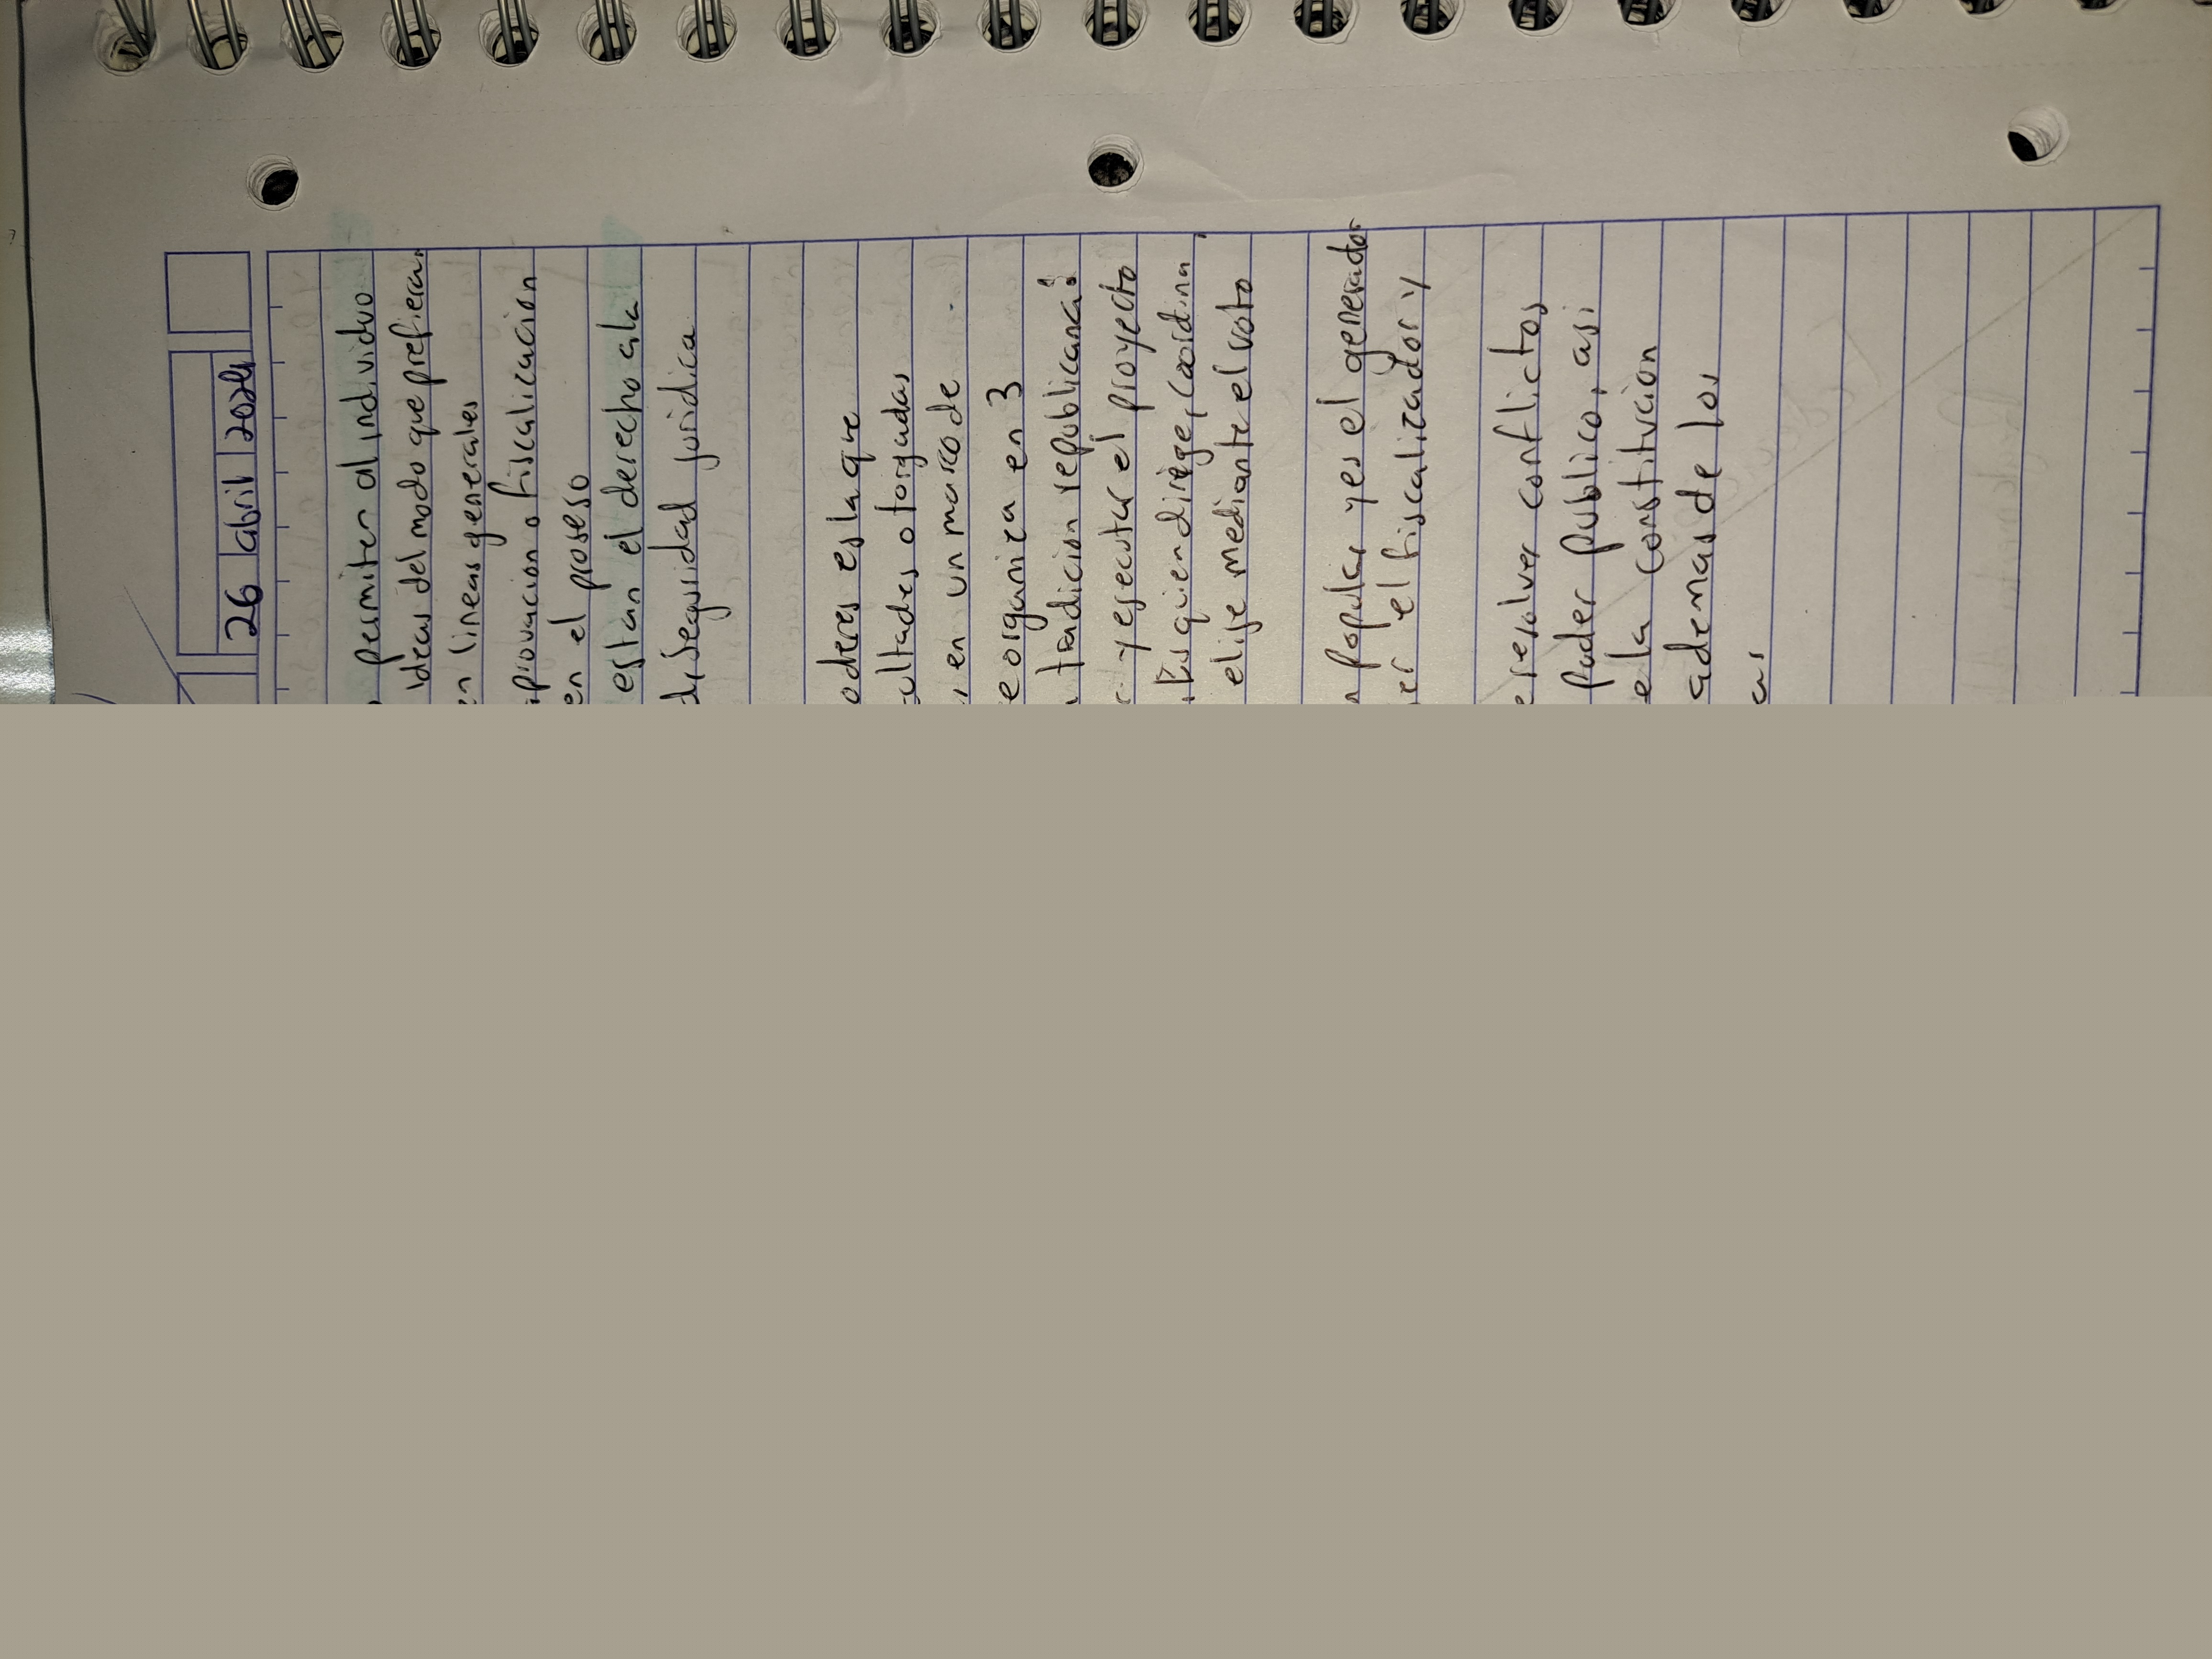 26 abril 2024
permiten al individuo
ideas del modo que prefieran
en lineas generales
o fiscalicacion
en el proseso
estan el derecho a la
seguridad juridica
es la que
otorgadas
, en un marco de
organiza en 3
tradicion republicana:
y ejecutar el proyecto
quien dirige, coordina
elije mediante el voto
popular y es el generador
el fiscalizador y
resolver conflictos
Poder publico, asi
la constitucion
ademas de los